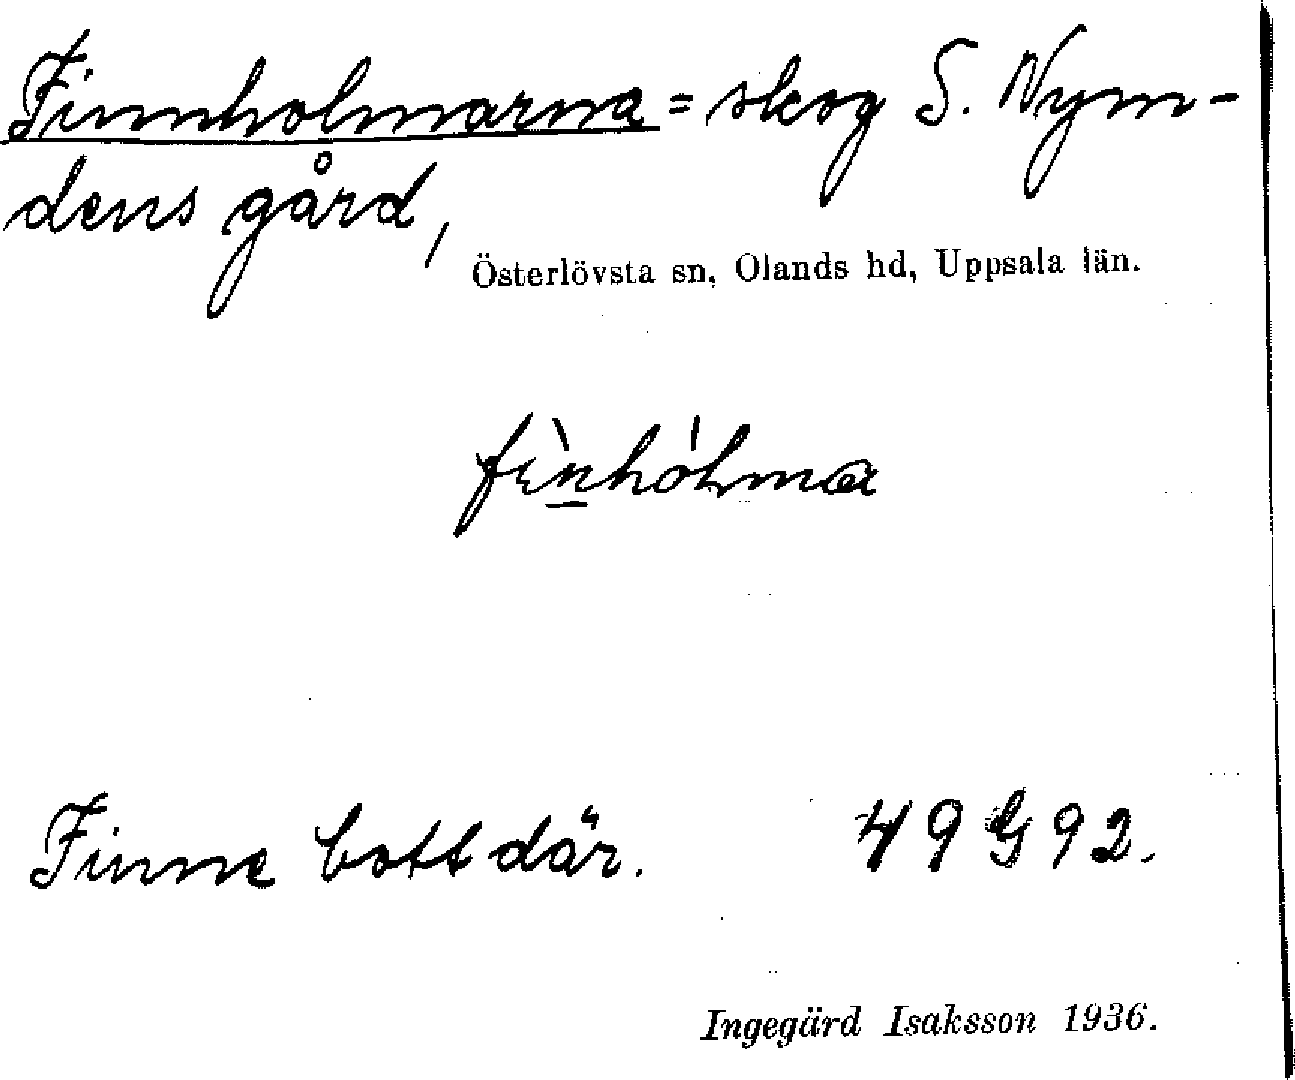 Finnholmarna = skog S. Nym-
dens gård,
Österlövsta sn, Olands hd, Uppsala län.
fìnhólma
Finne bott där. 49 G 92.
Ingegärd Isaksson 1936.